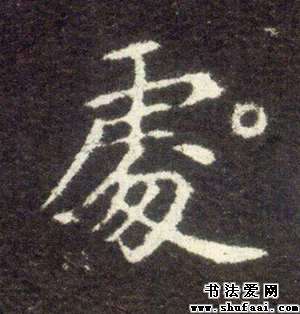 處
书法爱网
www.shufaai.com